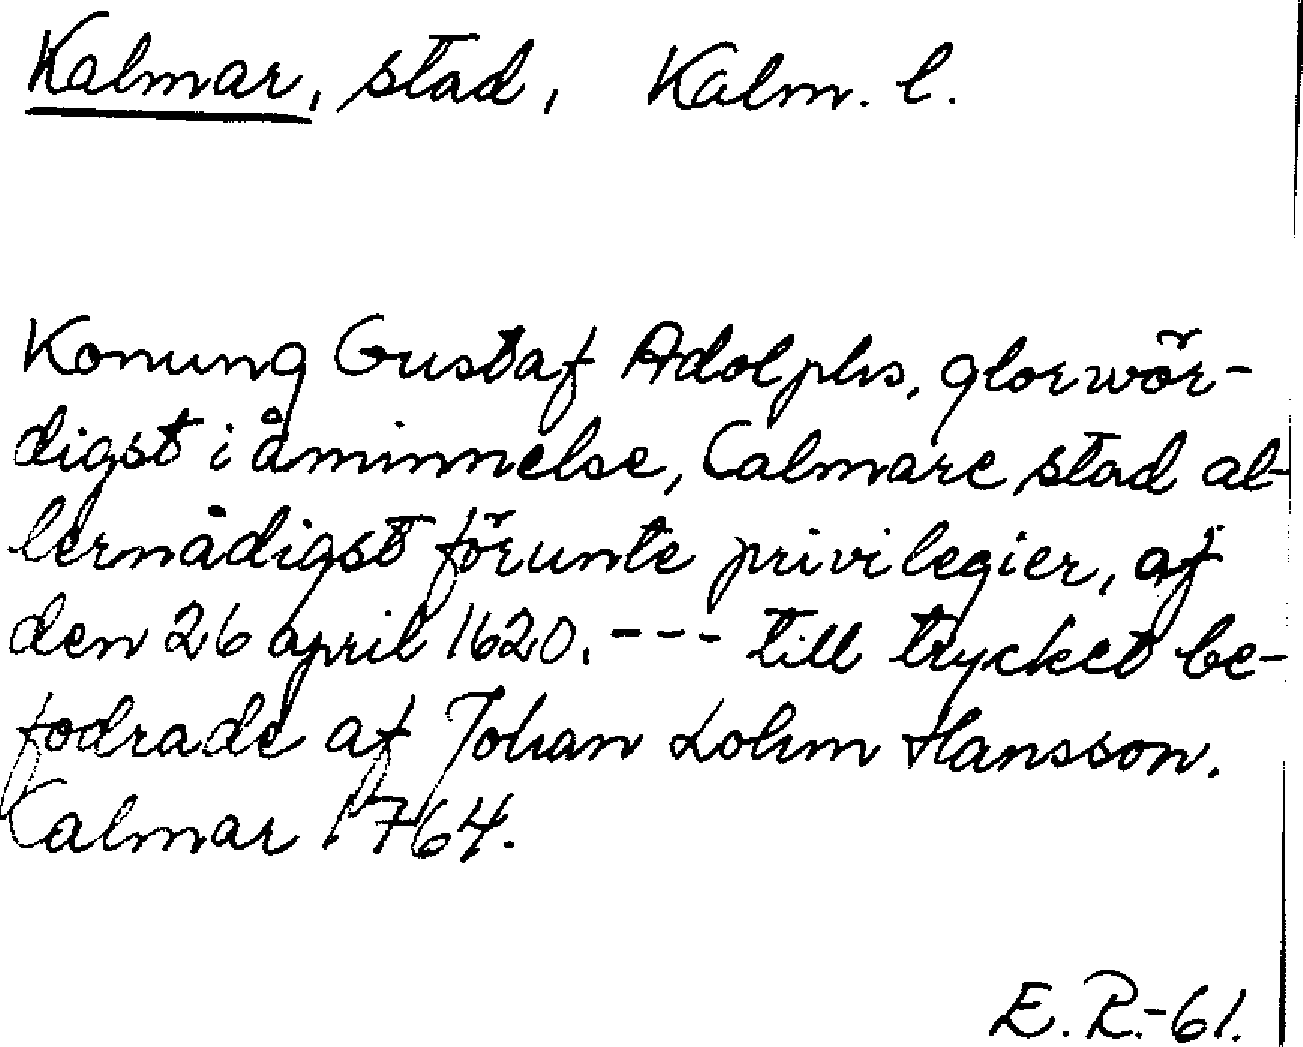 Kalmar, stad, Kalm. l.
Konung Gustaf Adolphs, glorwör-
digst i åminnelse, Calmare stad al-
lernådigst förunte privilegier, af
den 26 april 1620. --- till trycket be-
fodrade af Johan Lohm Hansson.
Calmar 1764.
E. R.-61.